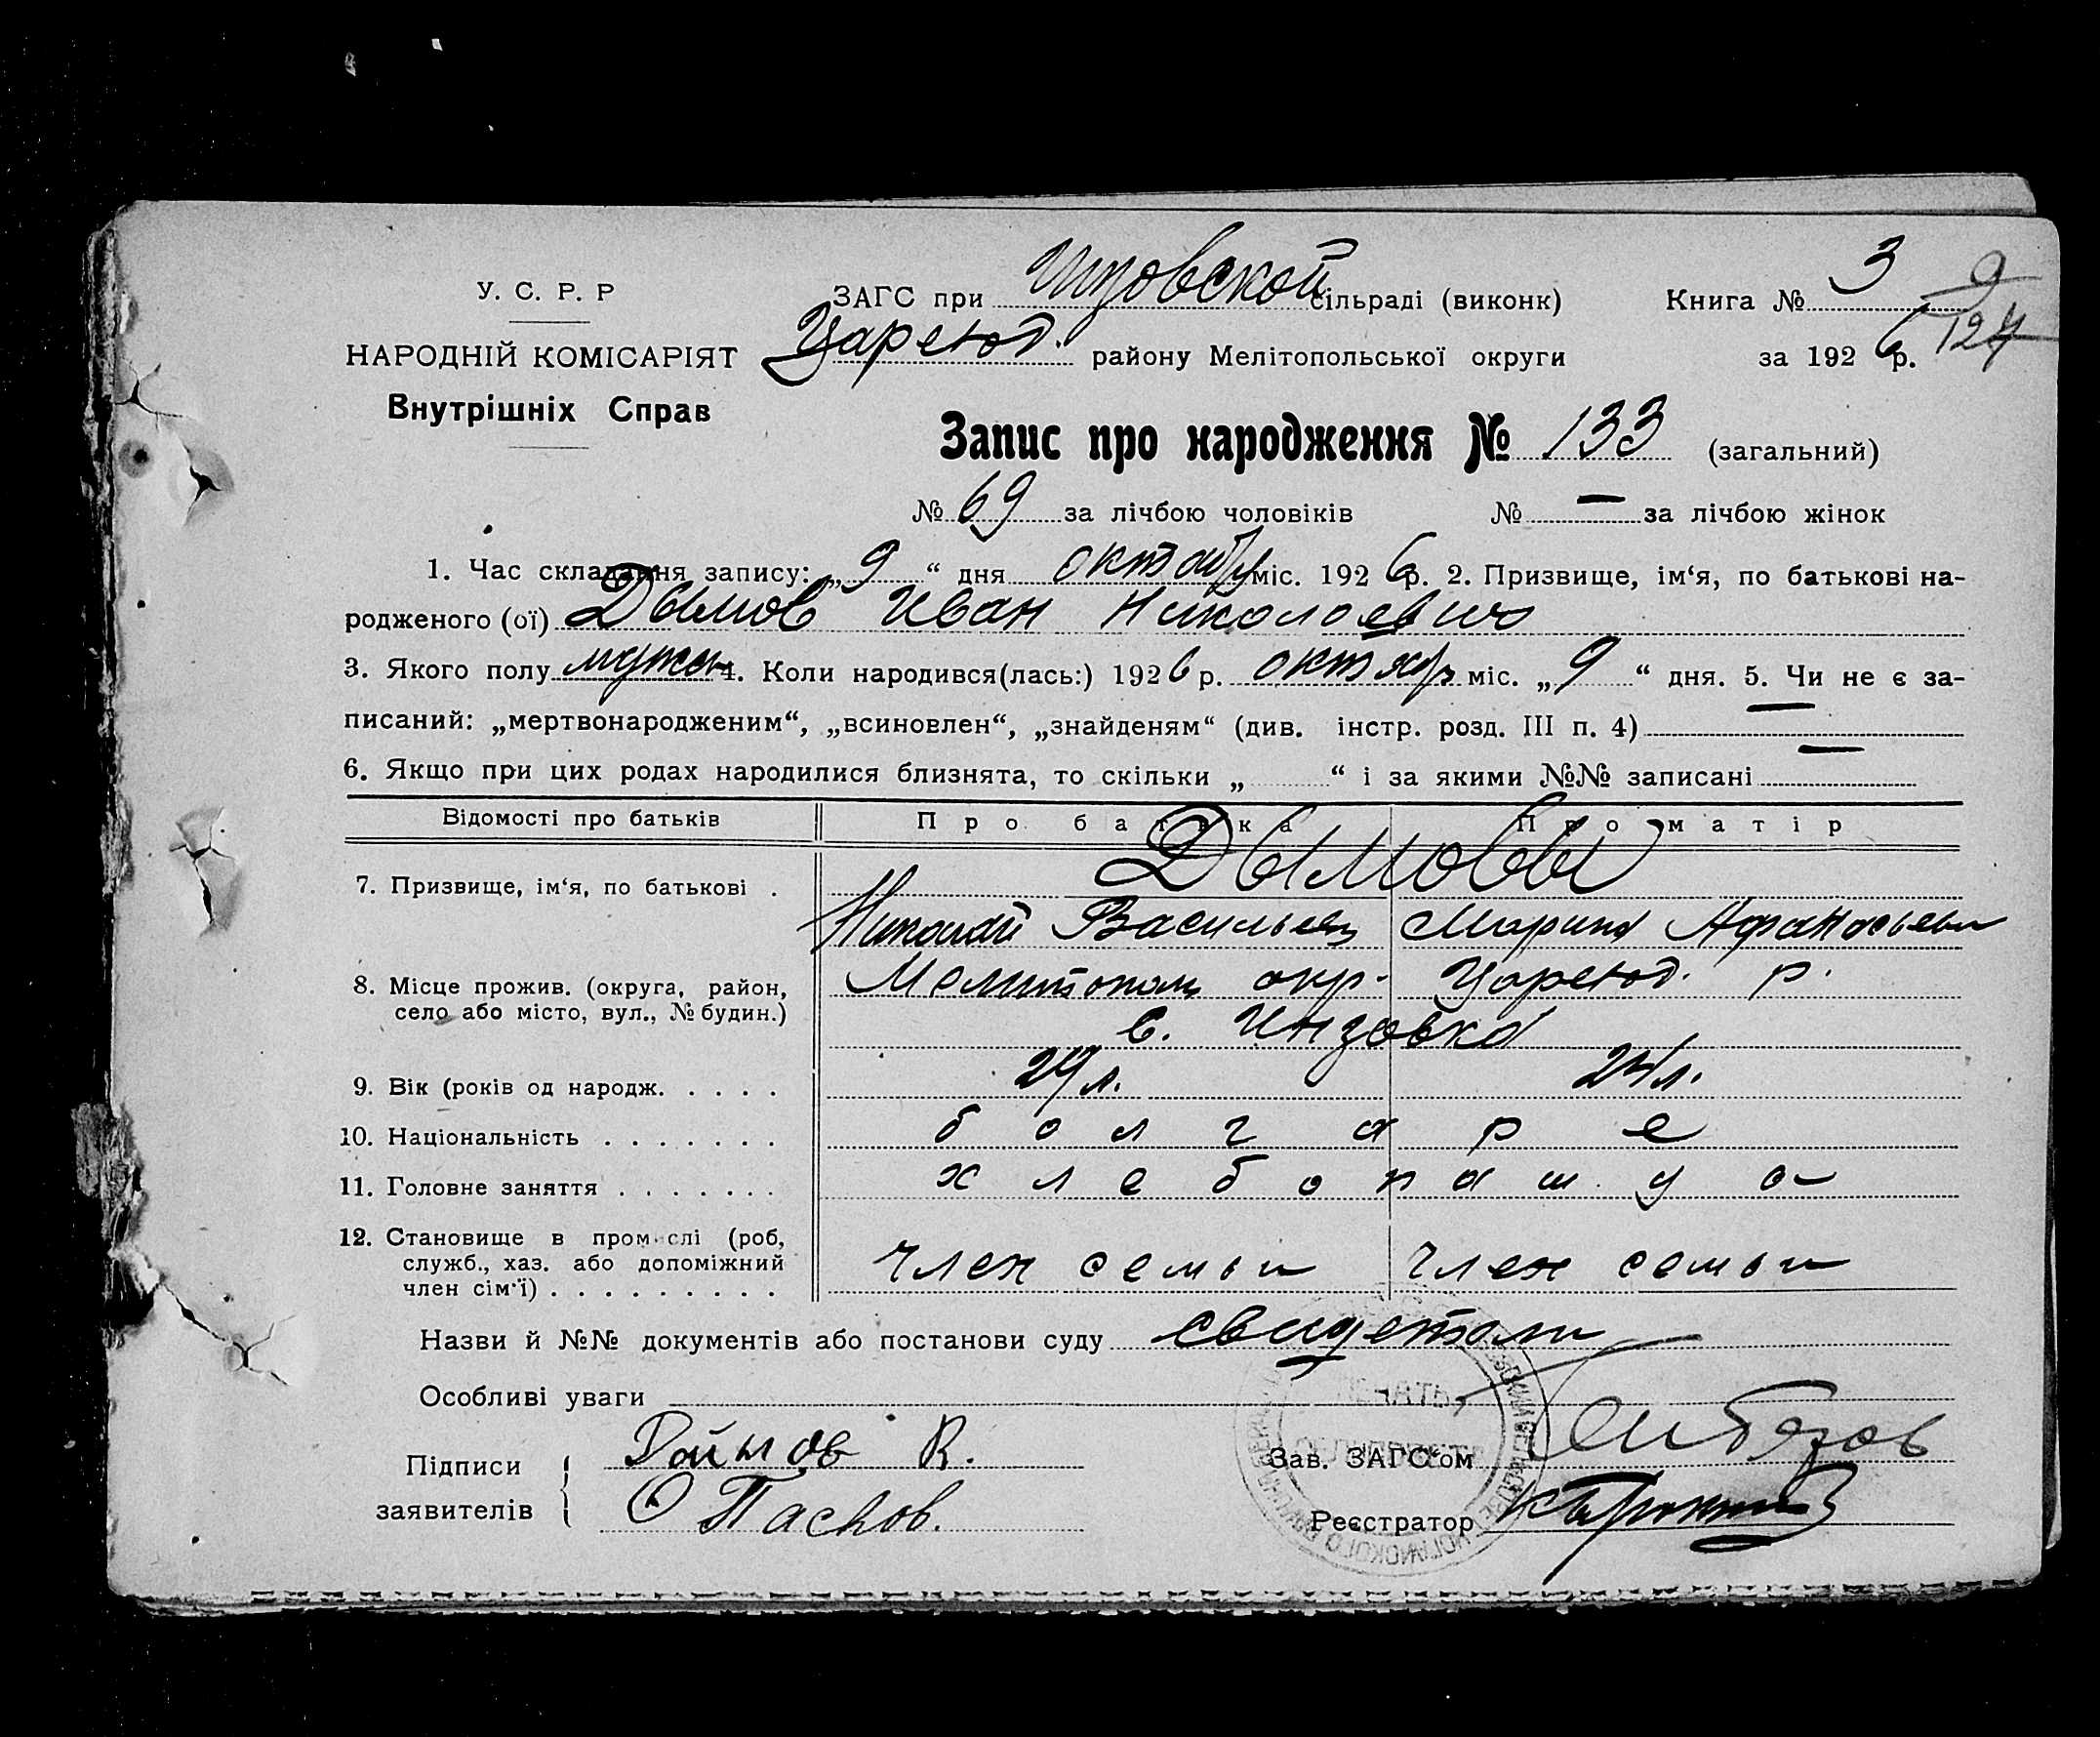 У. С. Р. Р
НАРОДНІЙ КОМІСАРІЯТ
Внутрішніх Справ
ЗАГС при Инзовской сільраді (виконк) Книга № 3
Цареюд. району Мелітопольської округи за 1926 р.
9
124
Запис про народження № 133 (загальний)
№ 69 за лічбою чоловіків № — за лічбою жінок
1. Час складання запису: „9“ дня октября міс. 1926 р. 2. Призвище, ім‘я, по батькові на-
родженого (ої) Дымов Иван Николаевич
3. Якого полу мужск 4. Коли народився(лась:) 1926 р. октябр міс. „9“ дня. 5. Чи не є за-
писаний: „мертвонародженим“, „всиновлен“, „знайденям“ (див. інстр. розд. III п. 4) —
6. Якщо при цих родах народилися близнята, то скільки „ “ і за якими №№ записані —
Відомості про батьків Про батька Про матір
7. Призвище, ім‘я, по батькові . Дымовы
Николай Васильев Марина Афанасьевн
8. Місце прожив. (округа, район, Мелитополь окр. Цареюд. р.
село або місто, вул., № будин.) с. Инзовка
9. Вік (років од народж. . . . . 29 л. 24 л.
10. Національність . . . . . . . болгаре
11. Головне заняття . . . . . . . хлебопашц
12. Становище в промислі (роб,
служб., хаз. або допоміжний член семьи член семьи
член сім‘ї) . . . . . . . . .
Назви й №№ документів або постанови суду свидетели
Особливі уваги
Підписи Даймов В.
заявителів О Паснов.
Зав. ЗАГС‘ом
Реєстратор
ПЕЧАТЬ